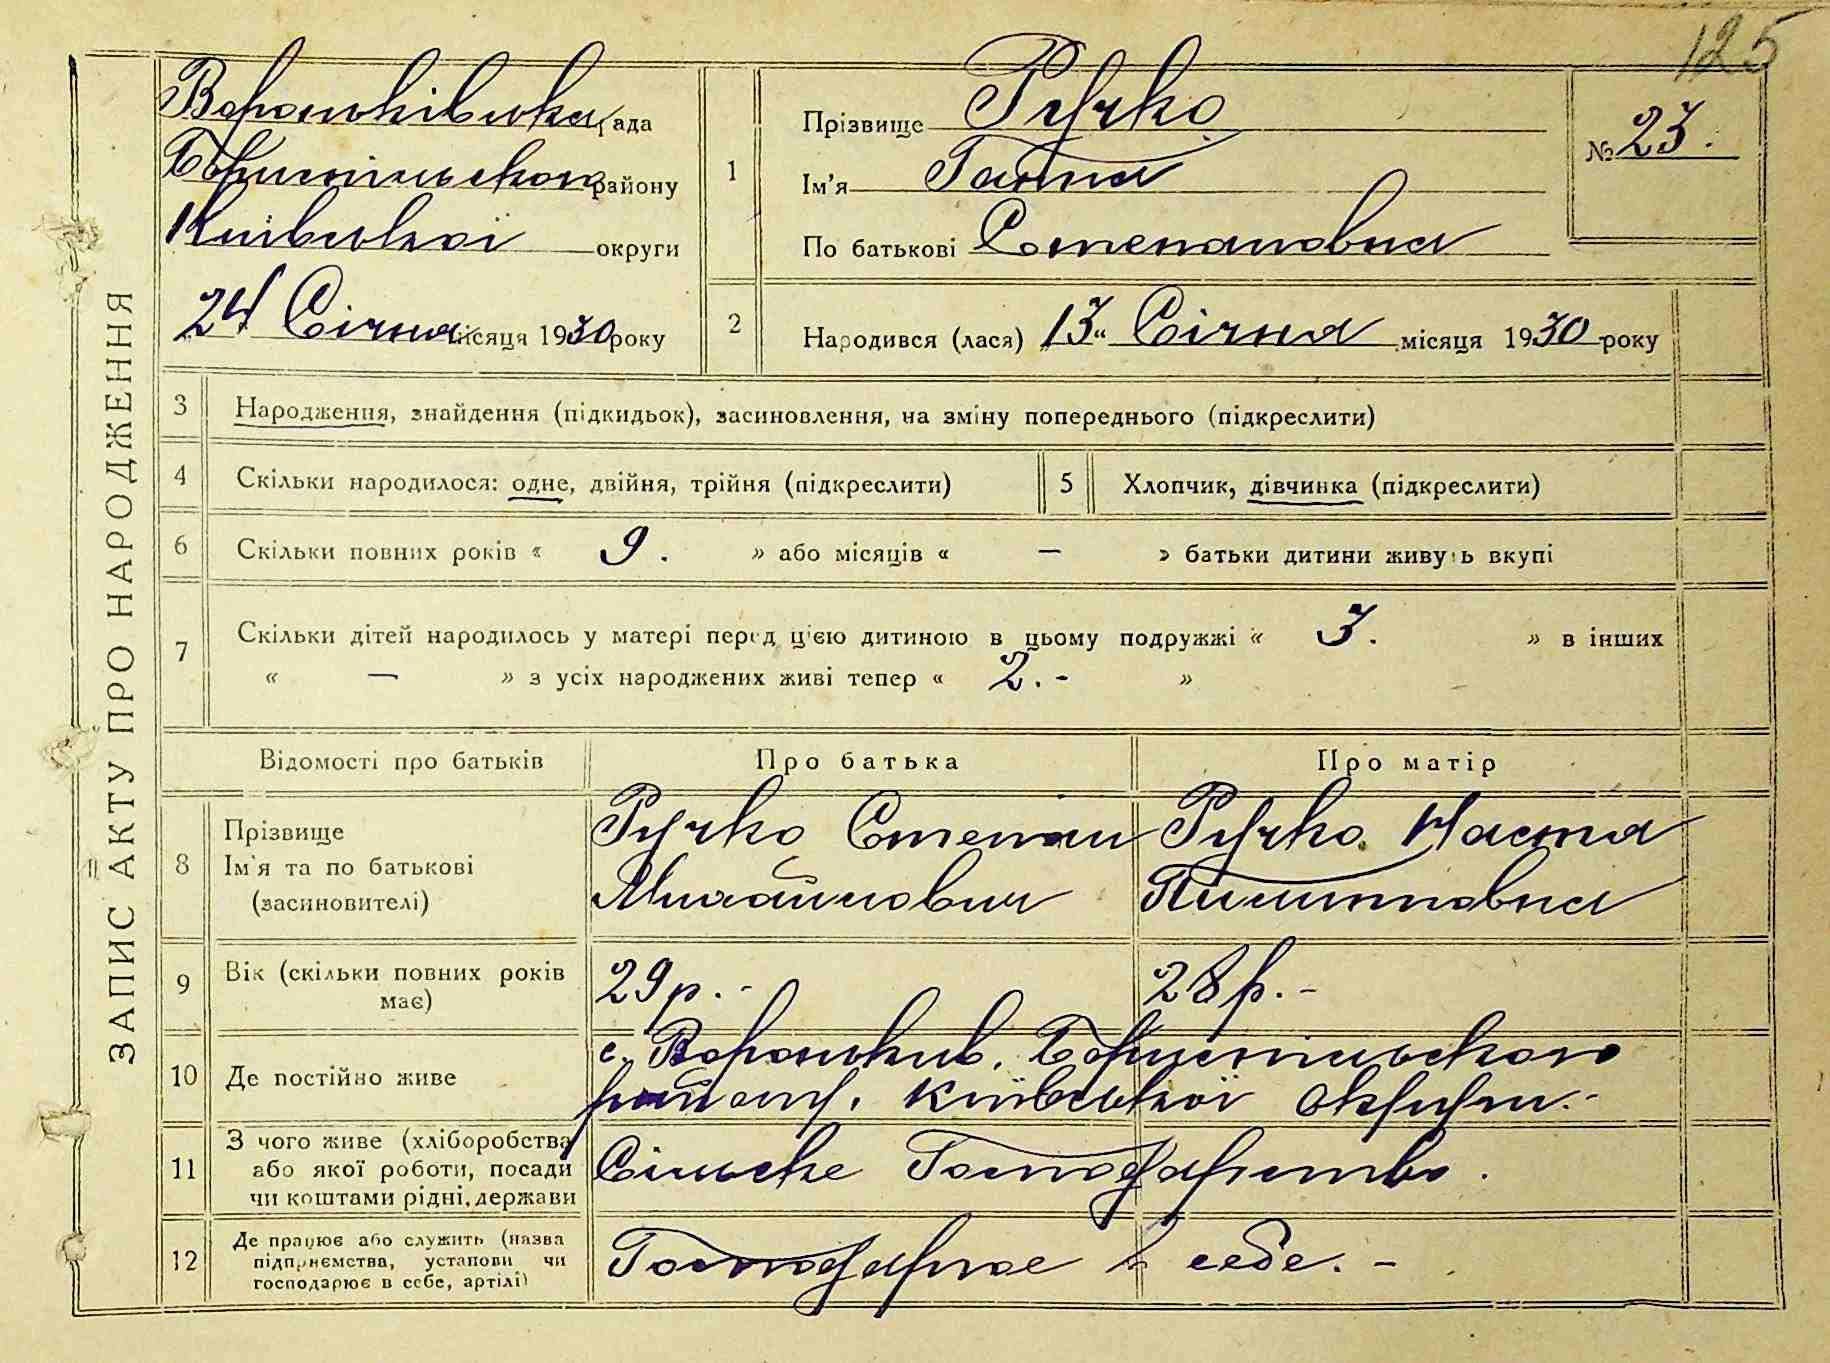 125
Вороньківська рада
Бориспільского району
Київської округи
24 Січня місяця 1930 року
1
Прізвище Ручко
Ім'я Ганна
По батькові Степановна
№ 23.
2
Народився (лася) „13“ Січня місяця 1930 року
ЗАПИС АКТУ ПРО НАРОДЖЕННЯ
3 Народження, знайдення (підкидьок), засиновлення, на зміну попереднього (підкреслити)
4 Скільки народилося: одне, двійня, трійня (підкреслити) 5 Хлопчик, дівчинка (підкреслити)
6 Скільки повних років « 9. » або місяців « — » батьки дитини живуть вкупі
7 Скільки дітей народилось у матері перед цією дитиною в цьому подружжі « 3. » в інших
« — » з усіх народжених живі тепер « 2. - »
Відомості про батьків Про батька Про матір
8 Прізвище
Ім'я та по батькові
(засиновителі)
Ручко Степан
Михайлович
Ручко Настя
Пилиповна
9 Вік (скільки повних років
має)
29 р. - 28 р. -
10 Де постійно живе
с. Вороньків, Бориспільского
району, Київської округи. -
11 З чого живе (хліборобства
або якої роботи, посади
чи коштами рідні, держави
Сільске Господарство.
12 Де працює або служить (назва
підприємства, установи чи
господарює в себе, артілі)
Господарює в себе. -